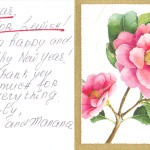 ear
or Louise!
y happy and
thy New Year!
Thank you
much for
everything
and Manana